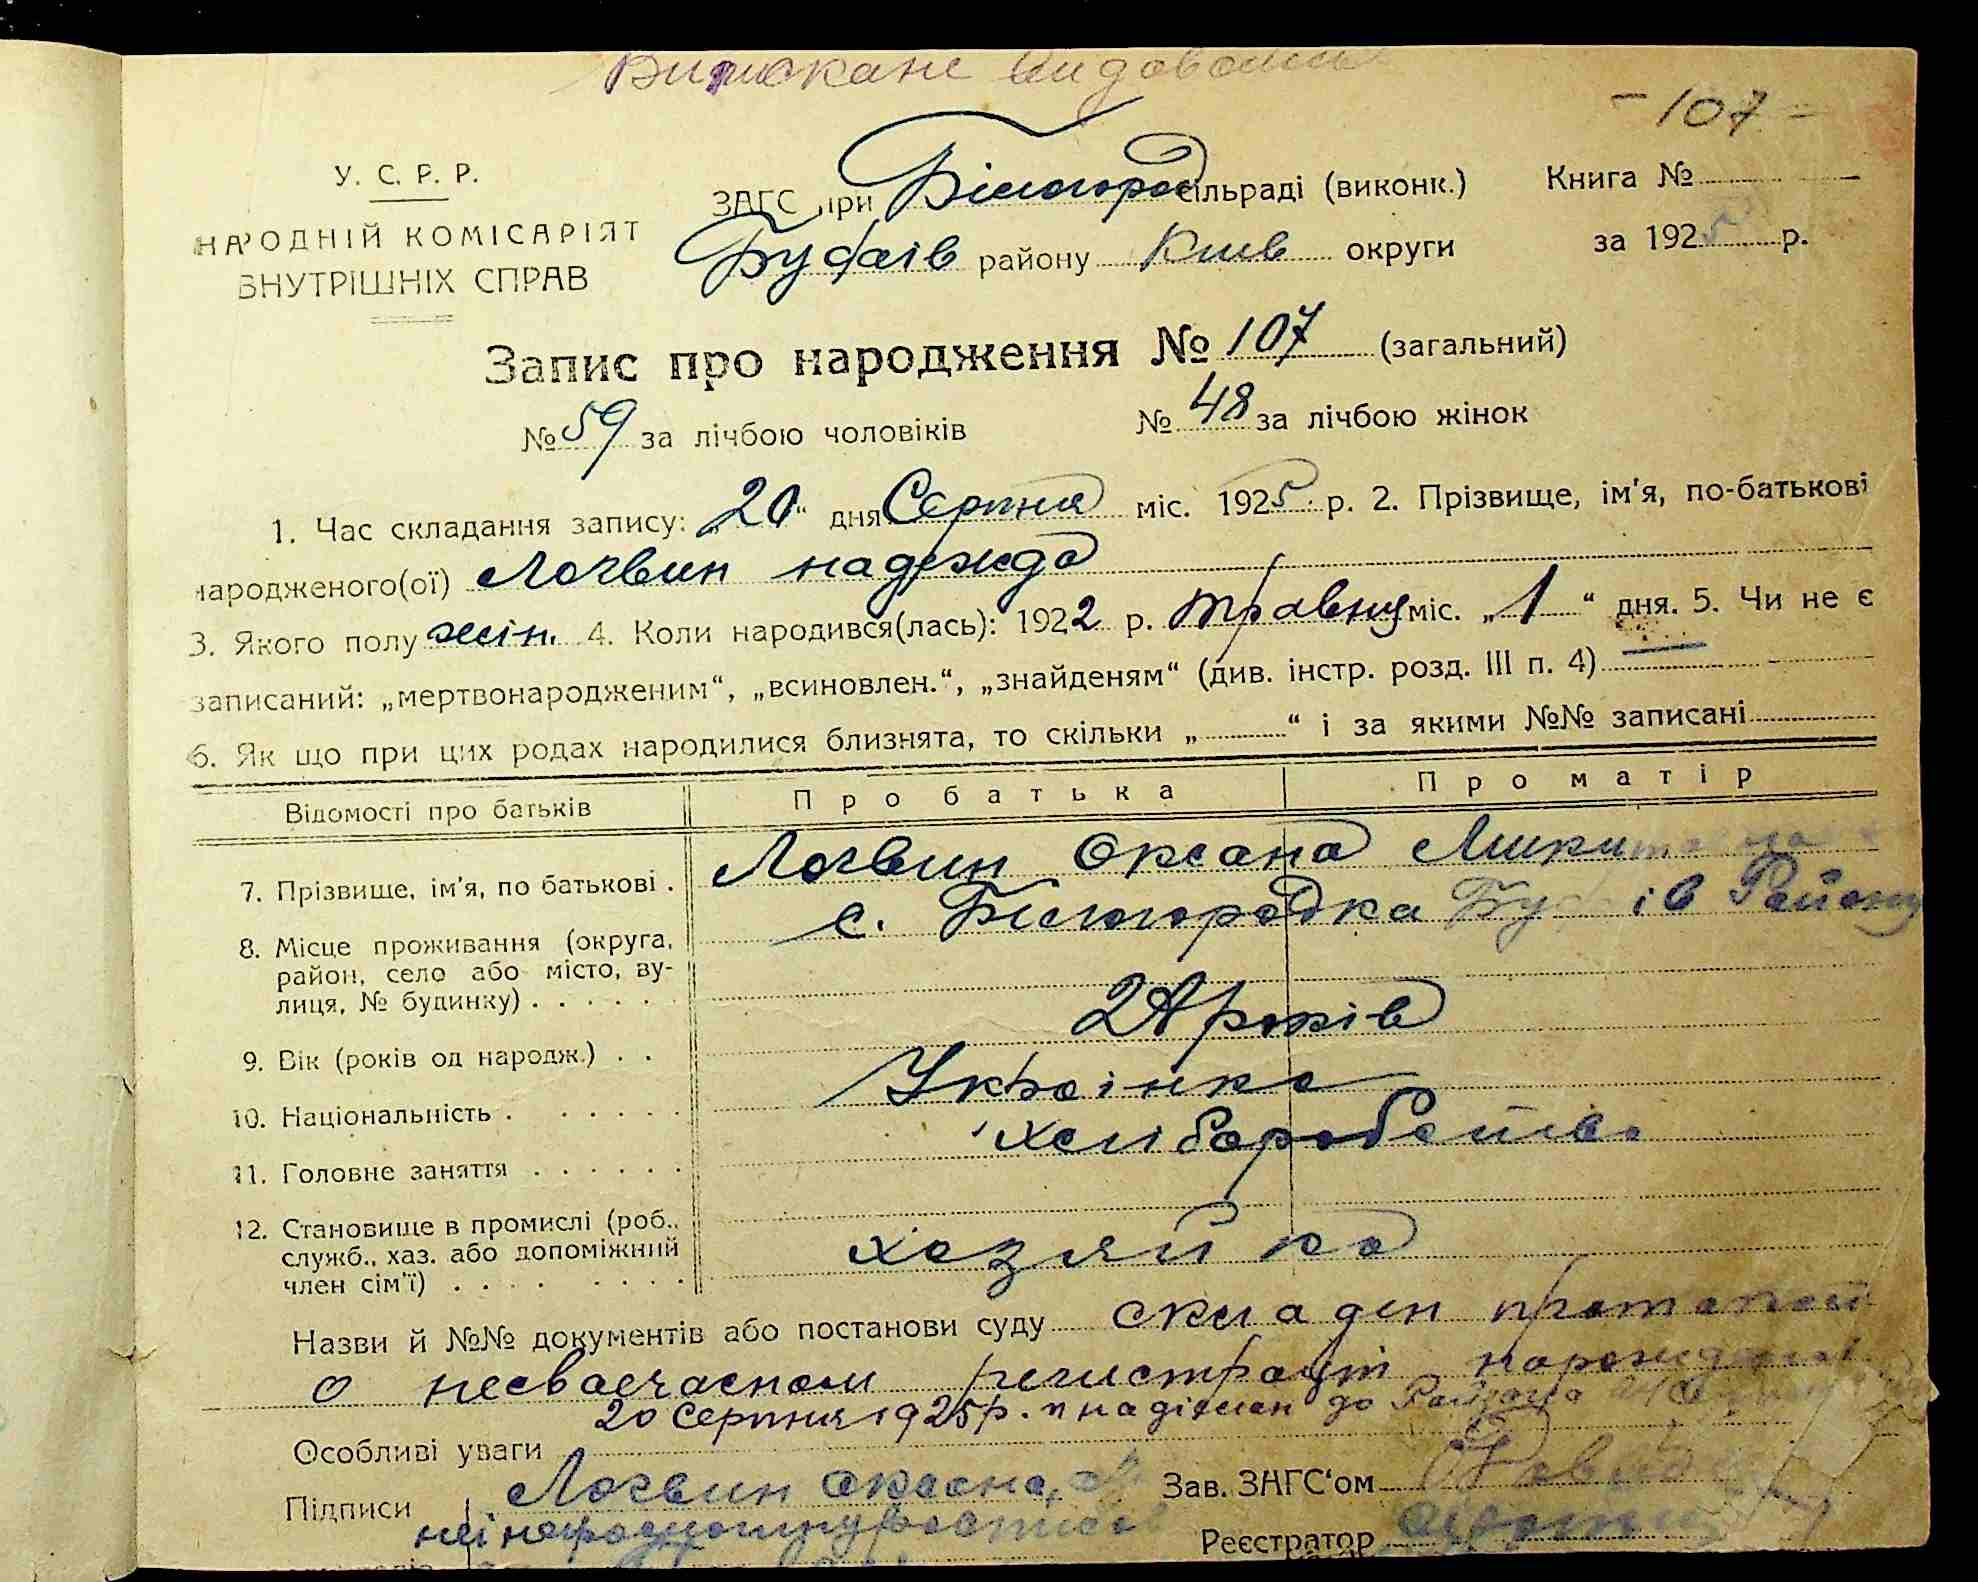 Випискане
- 107 -
У. С. Р. Р.
НАРОДНІЙ КОМІСАРІЯТ
ВНУТРІШНІХ СПРАВ
ЗАГС при Білогород сільраді (виконк.) Книга №
Будаів району Київ округи за 1925 р.
Запис про народження № 107 (загальний)
№ 59 за лічбою чоловіків № 48 за лічбою жінок
1. Час складання запису: „20“ дня Серпня міс. 1925 р. 2. Прізвище, ім'я, по-батькові
народженого(ої) Логвин надежда
3. Якого полу жін. 4. Коли народився(лась): 1922 р. травня міс. „1“ дня. 5. Чи не є
записаний: „мертвонародженим“, „всиновлен.“, „знайденям“ (див. інстр. розд. III п. 4)
6. Як що при цих родах народилися близнята, то скільки „ “ і за якими №№ записані
Відомості про батьків Про батька Про матір
7. Прізвище, ім'я, по батькові . Логвин Оксана
8. Місце проживання (округа, район, село або місто, вулиця, № будинку) . . . . . . с. Білогородка Будаів Району
9. Вік (років од народж.) . . 24 років
10. Національність . . . . . . Українка
11. Головне заняття . . . . . . хліборобство
12. Становище в промислі (роб., служб., хаз. або допоміжний член сім'ї) . . . . . . . . хазяйка
Назви й №№ документів або постанови суду складен протокол
о несваечасном регистрації
20 Серпня 1925 р. до
Особливі уваги
Підписи Логвин Оксана, Зав. ЗАГС'ом
Реєстратор